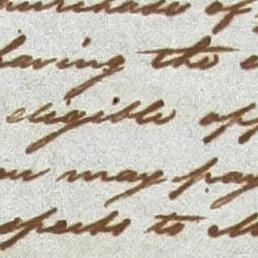 purchase of
having the
eligible opp
you may pay
spects to M